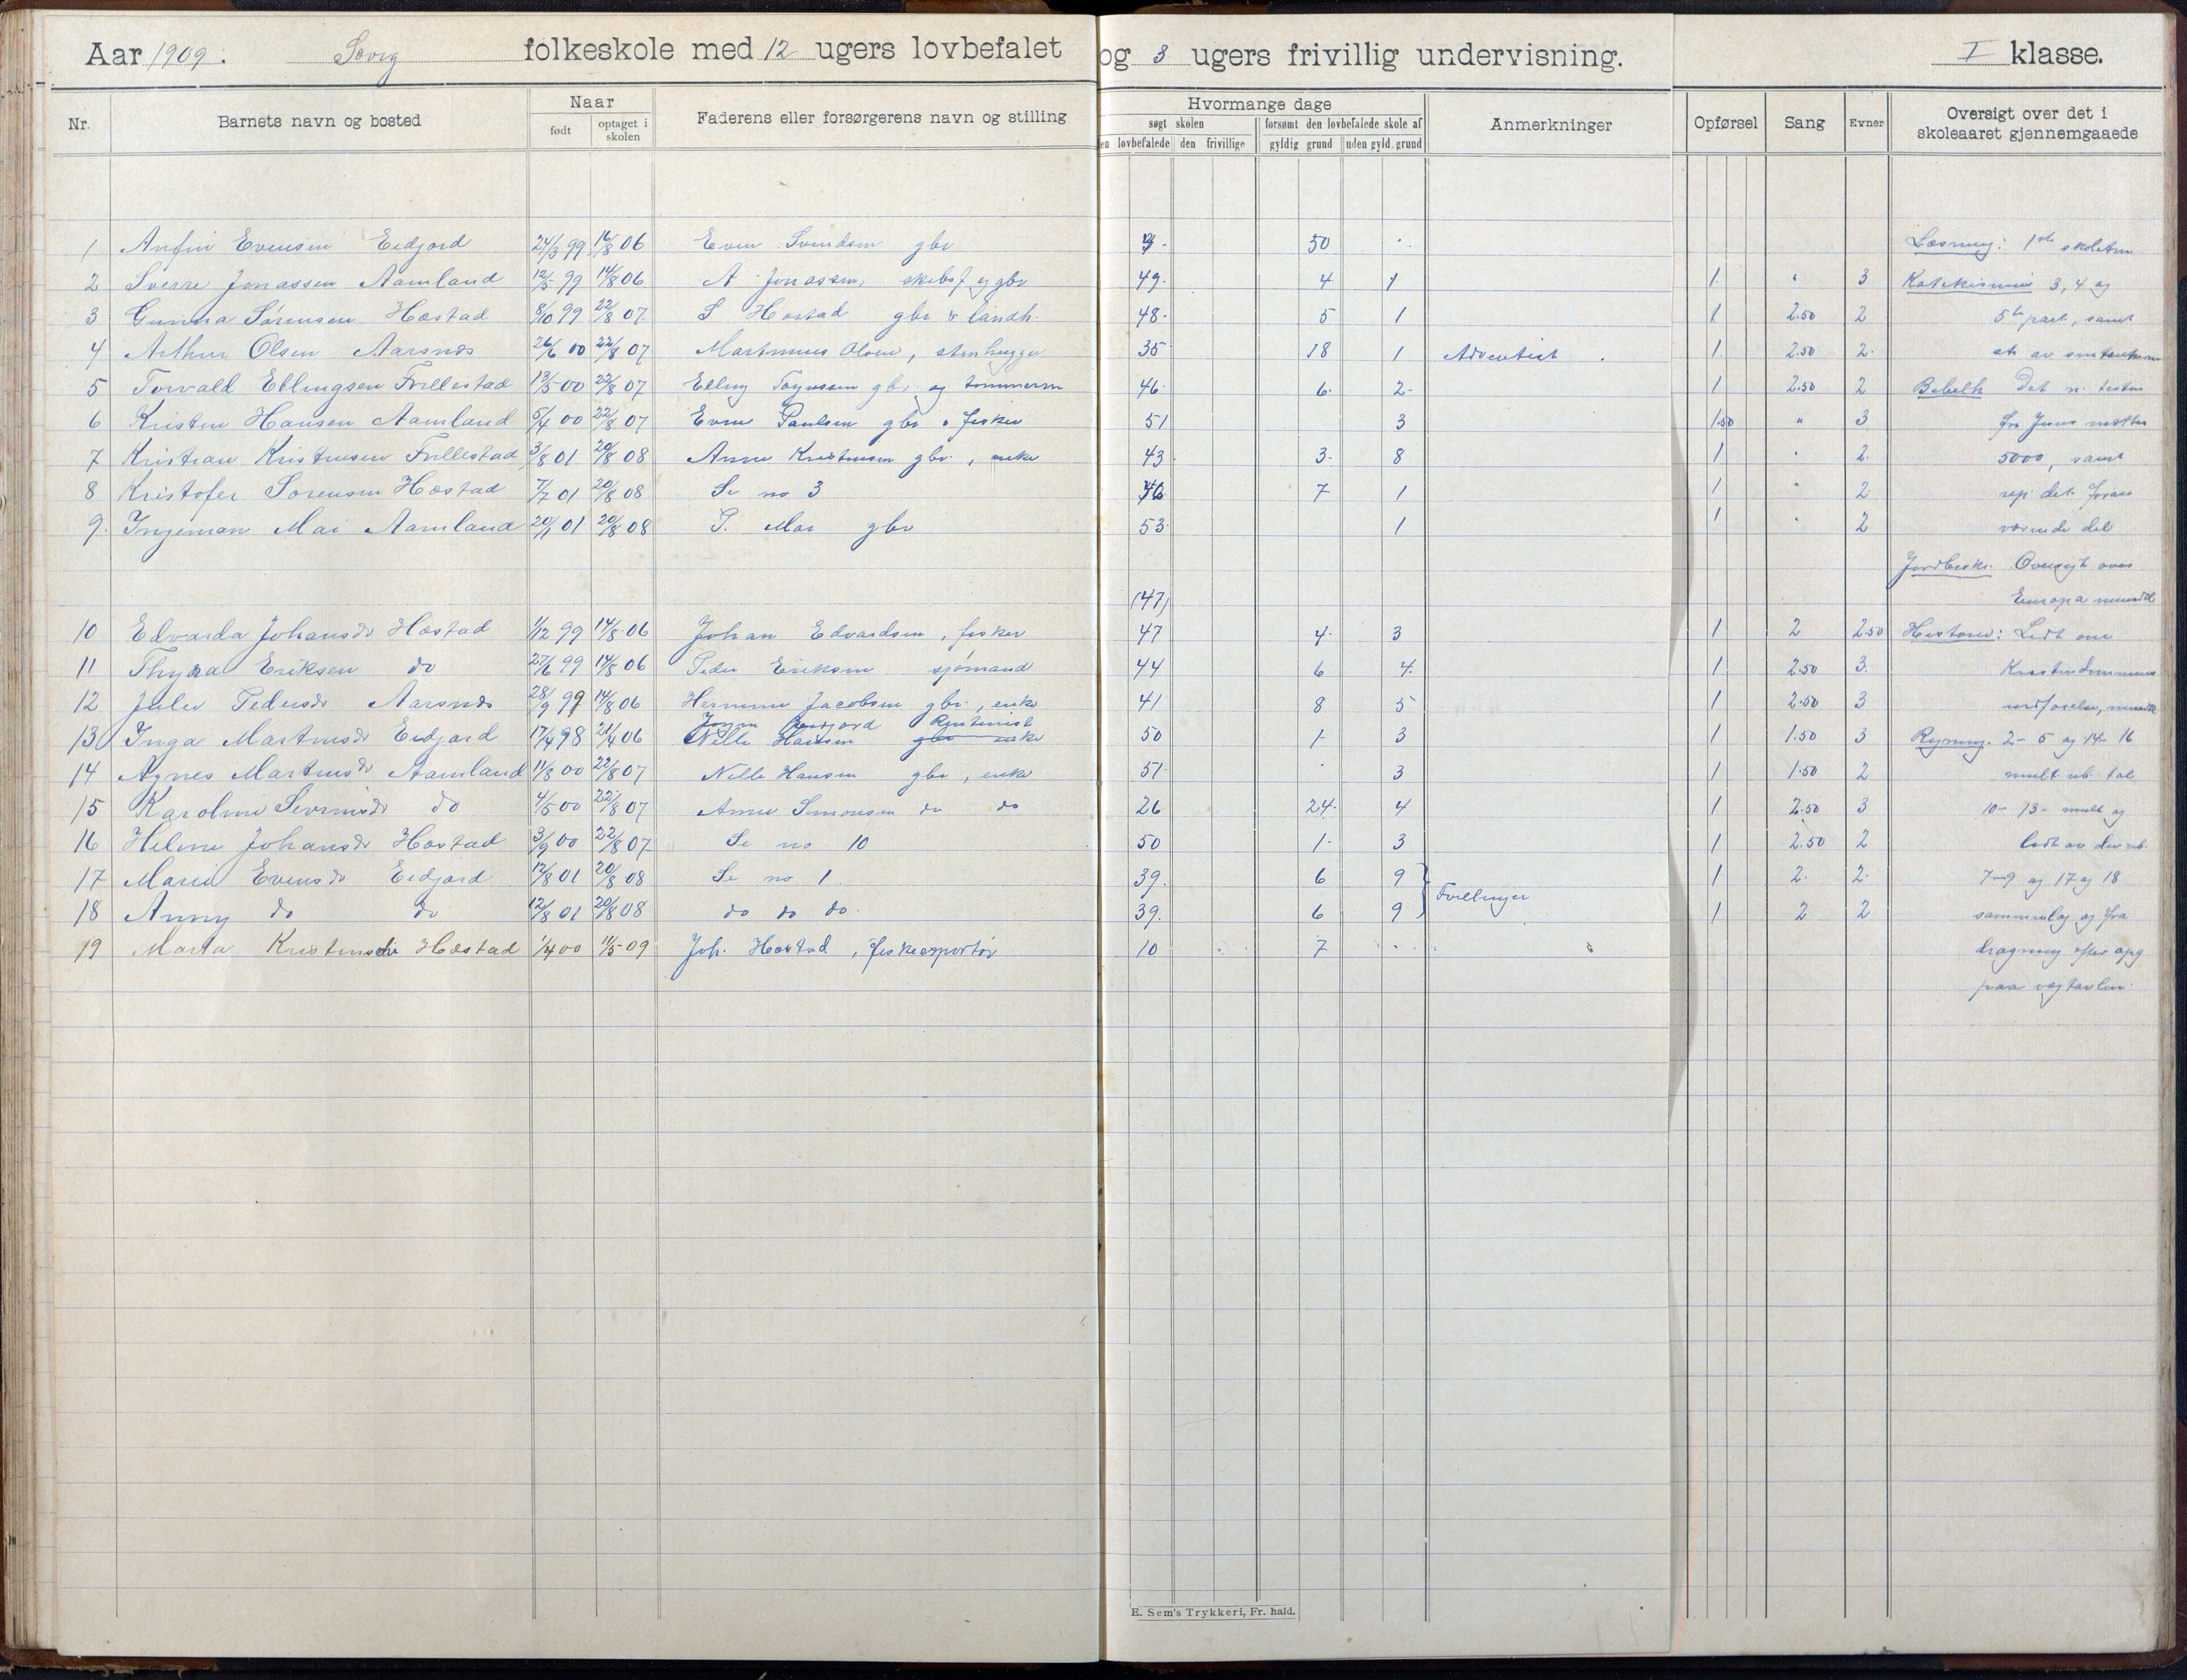 Aar 1909. Sørig folkeskole med 12 ugers lovbefalet og 3 ugers frivillig undervisning. I klasse.
Nr. Barnets navn og bosted Naar Faderens eller forsørgerens navn og stilling Hvormange dage Anmerkninger Opførsel Sang Evner Oversigt over det i skoleaaret gjennemgaaede
født optaget i skolen søgt skolen forsømt den lovbefalede skole af
en lovbefalede den frivillige gyldig grund uden gyld. grund
1 Anfin Evensen Eidjord 24/3 99 14/8 06 Even Svendsen gbr 50 Læsning: 1ste
2 Sverre Jonassen Aamland 12/5 99 14/8 06 A Jonassen, gbr 49. 4 1 1. " 3 Katekismus 3, 4 og
3 Gunna Sørensen Hæstad 8/10 99 22/8 07 S Hæstad gbr & landh. 48. 5 1 1 2.50 2 5te part, samt
4 Arthur Olsen Aarsnes 26/6 00 22/8 07 Martinius Olsen, stenhugger 35 18 1 Adventist 1. 2.50 2.
5 Torvald Ellingsen Frillestad 13/5 00 22/8 07 Elling gbr og tømmerm 46 6. 2. 1 2.50 2 Bibelh Det n. testm
6 Kristen Hansen Aamland 5/4 00 22/8 07 Even Paulsen gbr & fisker 51 3 1.50 " 3 fra Jesus mætter
7 Kristian Kristensen Frillestad 3/8 01 20/8 08 Anne Kristensen gbr., enke 43 3. 8 1 " 2. 5000, samt
8 Kristofer Sørensen Hæstad 7/7 01 20/8 08 Se no 3 46 7 1 1 " 2 rep. det
9. Ingeman Mai Aamland 20/1 01 20/8 08 P. Mai gbr 53 1 1 " 2 værende del
Jordbeskr. Oversigt over
(47) Europa
10 Edvarda Johansdr Hæstad 1/12 99 14/8 06 Johan Edvardsen, fisker 47 4. 3 1 2 2.50 Historie: Lidt om
11 Thyra Eriksen do 27/6 99 14/8 06 Peder Eriksen sjømand 44 6 4. 1. 2.50 3. Kristendommens
12 Julie Pedersdr Aarsnes 28/9 99 14/8 06 Hermine Jacobsen gbr., enke 41 8 5 1 2.50 3 indførelse,
13 Inga Martinsdr Eidjord 17/4 98 21/4 06 Nelle Hansen gbr enke 50 1. 3 1 1.50 3 Regning. 2-5 og 14-16
14 Agnes Martinsdr Aamland 11/8 00 22/8 07 Nelle Hansen gbr, enke 51. 3 1 1.50 2 mult ub. tal
15 Karoline do 4/5 00 22/8 07 Anne Simonsen do do 26 24. 4 1 2.50 3 10-13- mult og
16 Helene Johansdr Hæstad 3/9 00 22/8 07 Se no 10 50 1. 3 1 2.50 2 lidt av div ub.
17 Marie Evensdr Eidjord 12/8 01 20/8 08 Se no 1 39. 6 9 Tvillinger 1 2. 2. 7-9 og 17 og 18
18 Anny do do 12/8 01 20/8 08 do do do. 39. 6 9 1 2 2 sammenlæg og fra
19 Marta Kristensdr Hæstad 1/4 00 11/5 09 Joh. Hæstad, fiskeexportør 10 7 dragning efter opg
paa vægtavlen.
E. Sem's Trykkeri, Fr. hald.